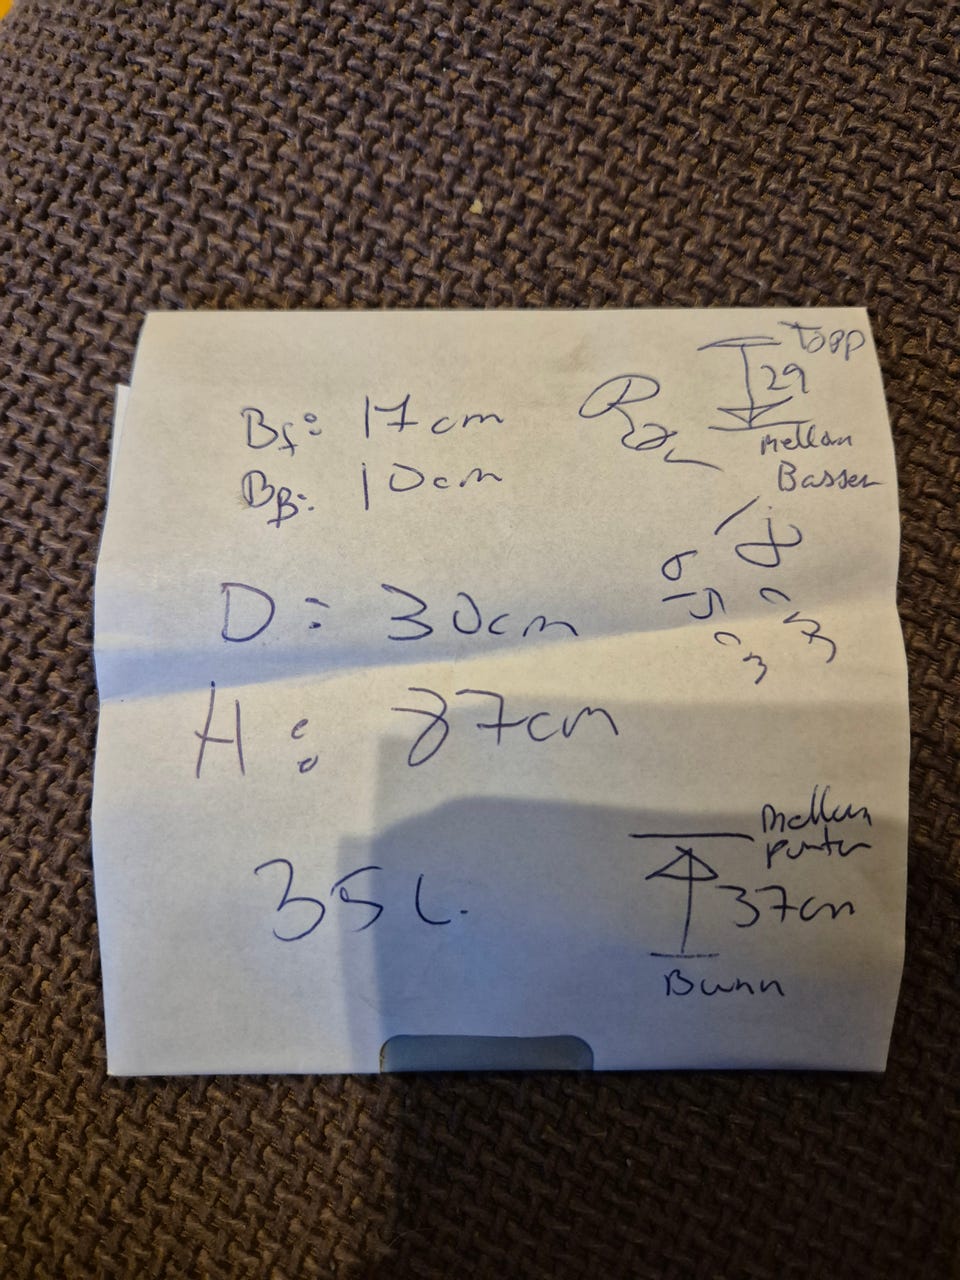 Bf: 17cm
BB: 10cm
D: 30cm
H: 87cm
35L.
Topp
29
Mellan
Basser
Mellan
37cm
Bunn